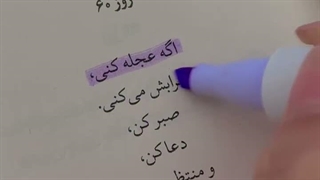 روز ۶۰
اگه عجله کنی،
خرابش می‌کنی.
صبر کن،
دعا کن،
و